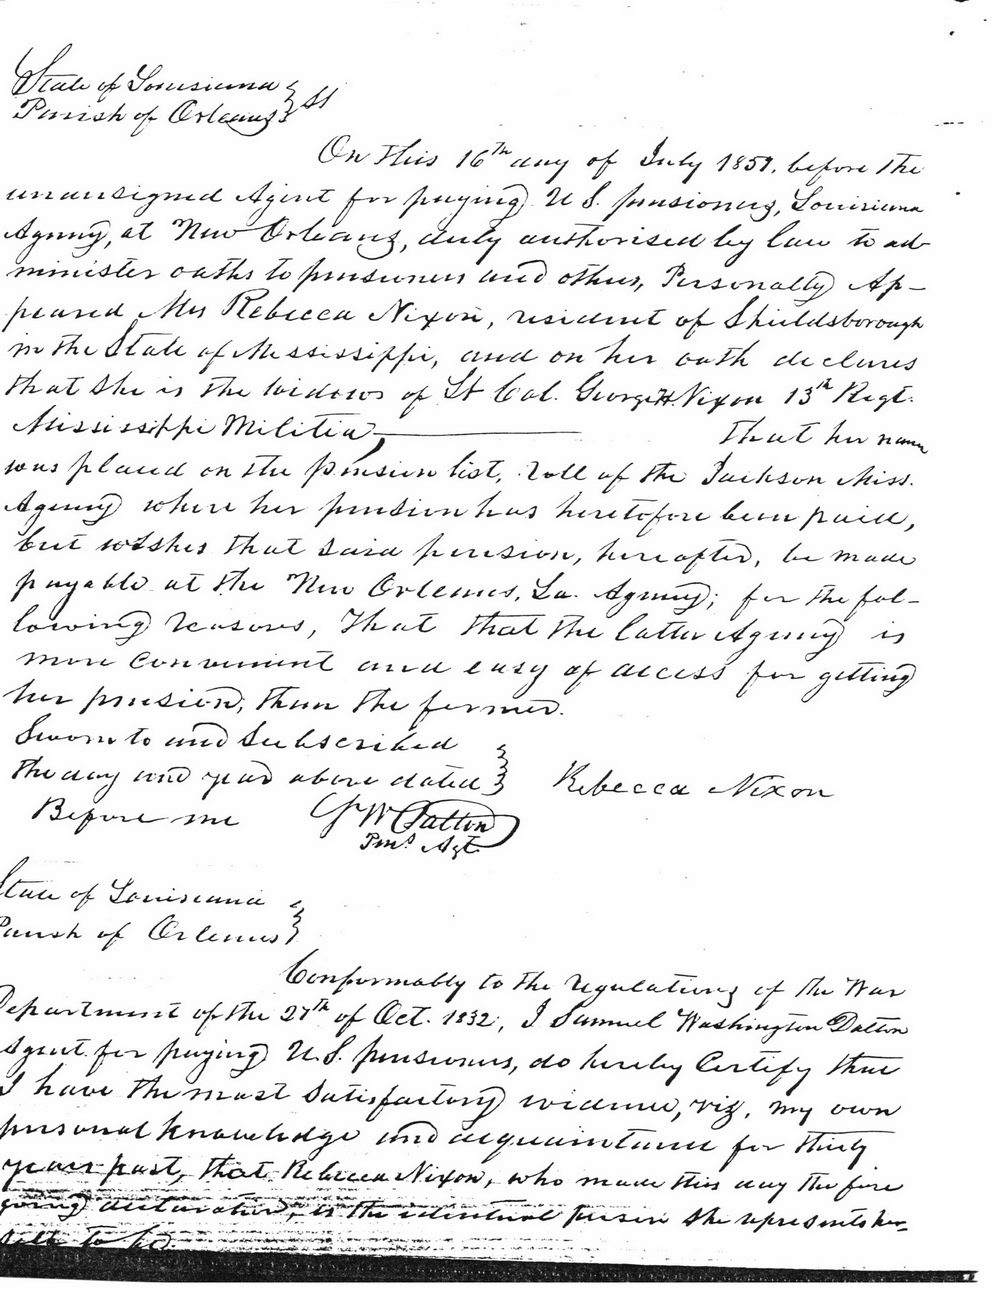 State of Louisiana }
Parish of Orleans } SS
On this 16th day of July 1851, before the
undersigned Agent for paying U.S. pensioners, Louisiana
Agency, at New Orleans, duly authorised by law to ad-
minister oaths to pensioners and others, Personally Ap-
peared Mrs Rebecca Nixon, resident of Shieldsborough
in the State of Mississippi, and on her oath declares
that she is the widow of Lt Col. George H Nixon 13th Regt.
Mississippi Militia, That her name
was placed on the pension list, roll of the Jackson Miss.
Agency where her pension has heretofore been paid,
but wishes that said pension, hereafter, be made
payable at the New Orleans, La. Agency; for the fol-
lowing reasons, That that the latter Agency is
more convenient and easy of access for getting
her pension, than the former.
Sworn to and Subscribed }
the day and year above dated } Rebecca Nixon
Before me W Dalton
Pens Agt.
State of Louisiana }
Parish of Orleans }
Conformably to the regulations of the War
Department of the 27th of Oct. 1832, I Samuel Washington Dalton
Agent for paying U.S. pensioners, do hereby Certify that
I have the most Satisfactory evidence, viz, my own
personal knowledge and acquaintance for thirty
years past, that Rebecca Nixon, who made this day the fore
going declaration, is the identical person she represents her-
self to be.